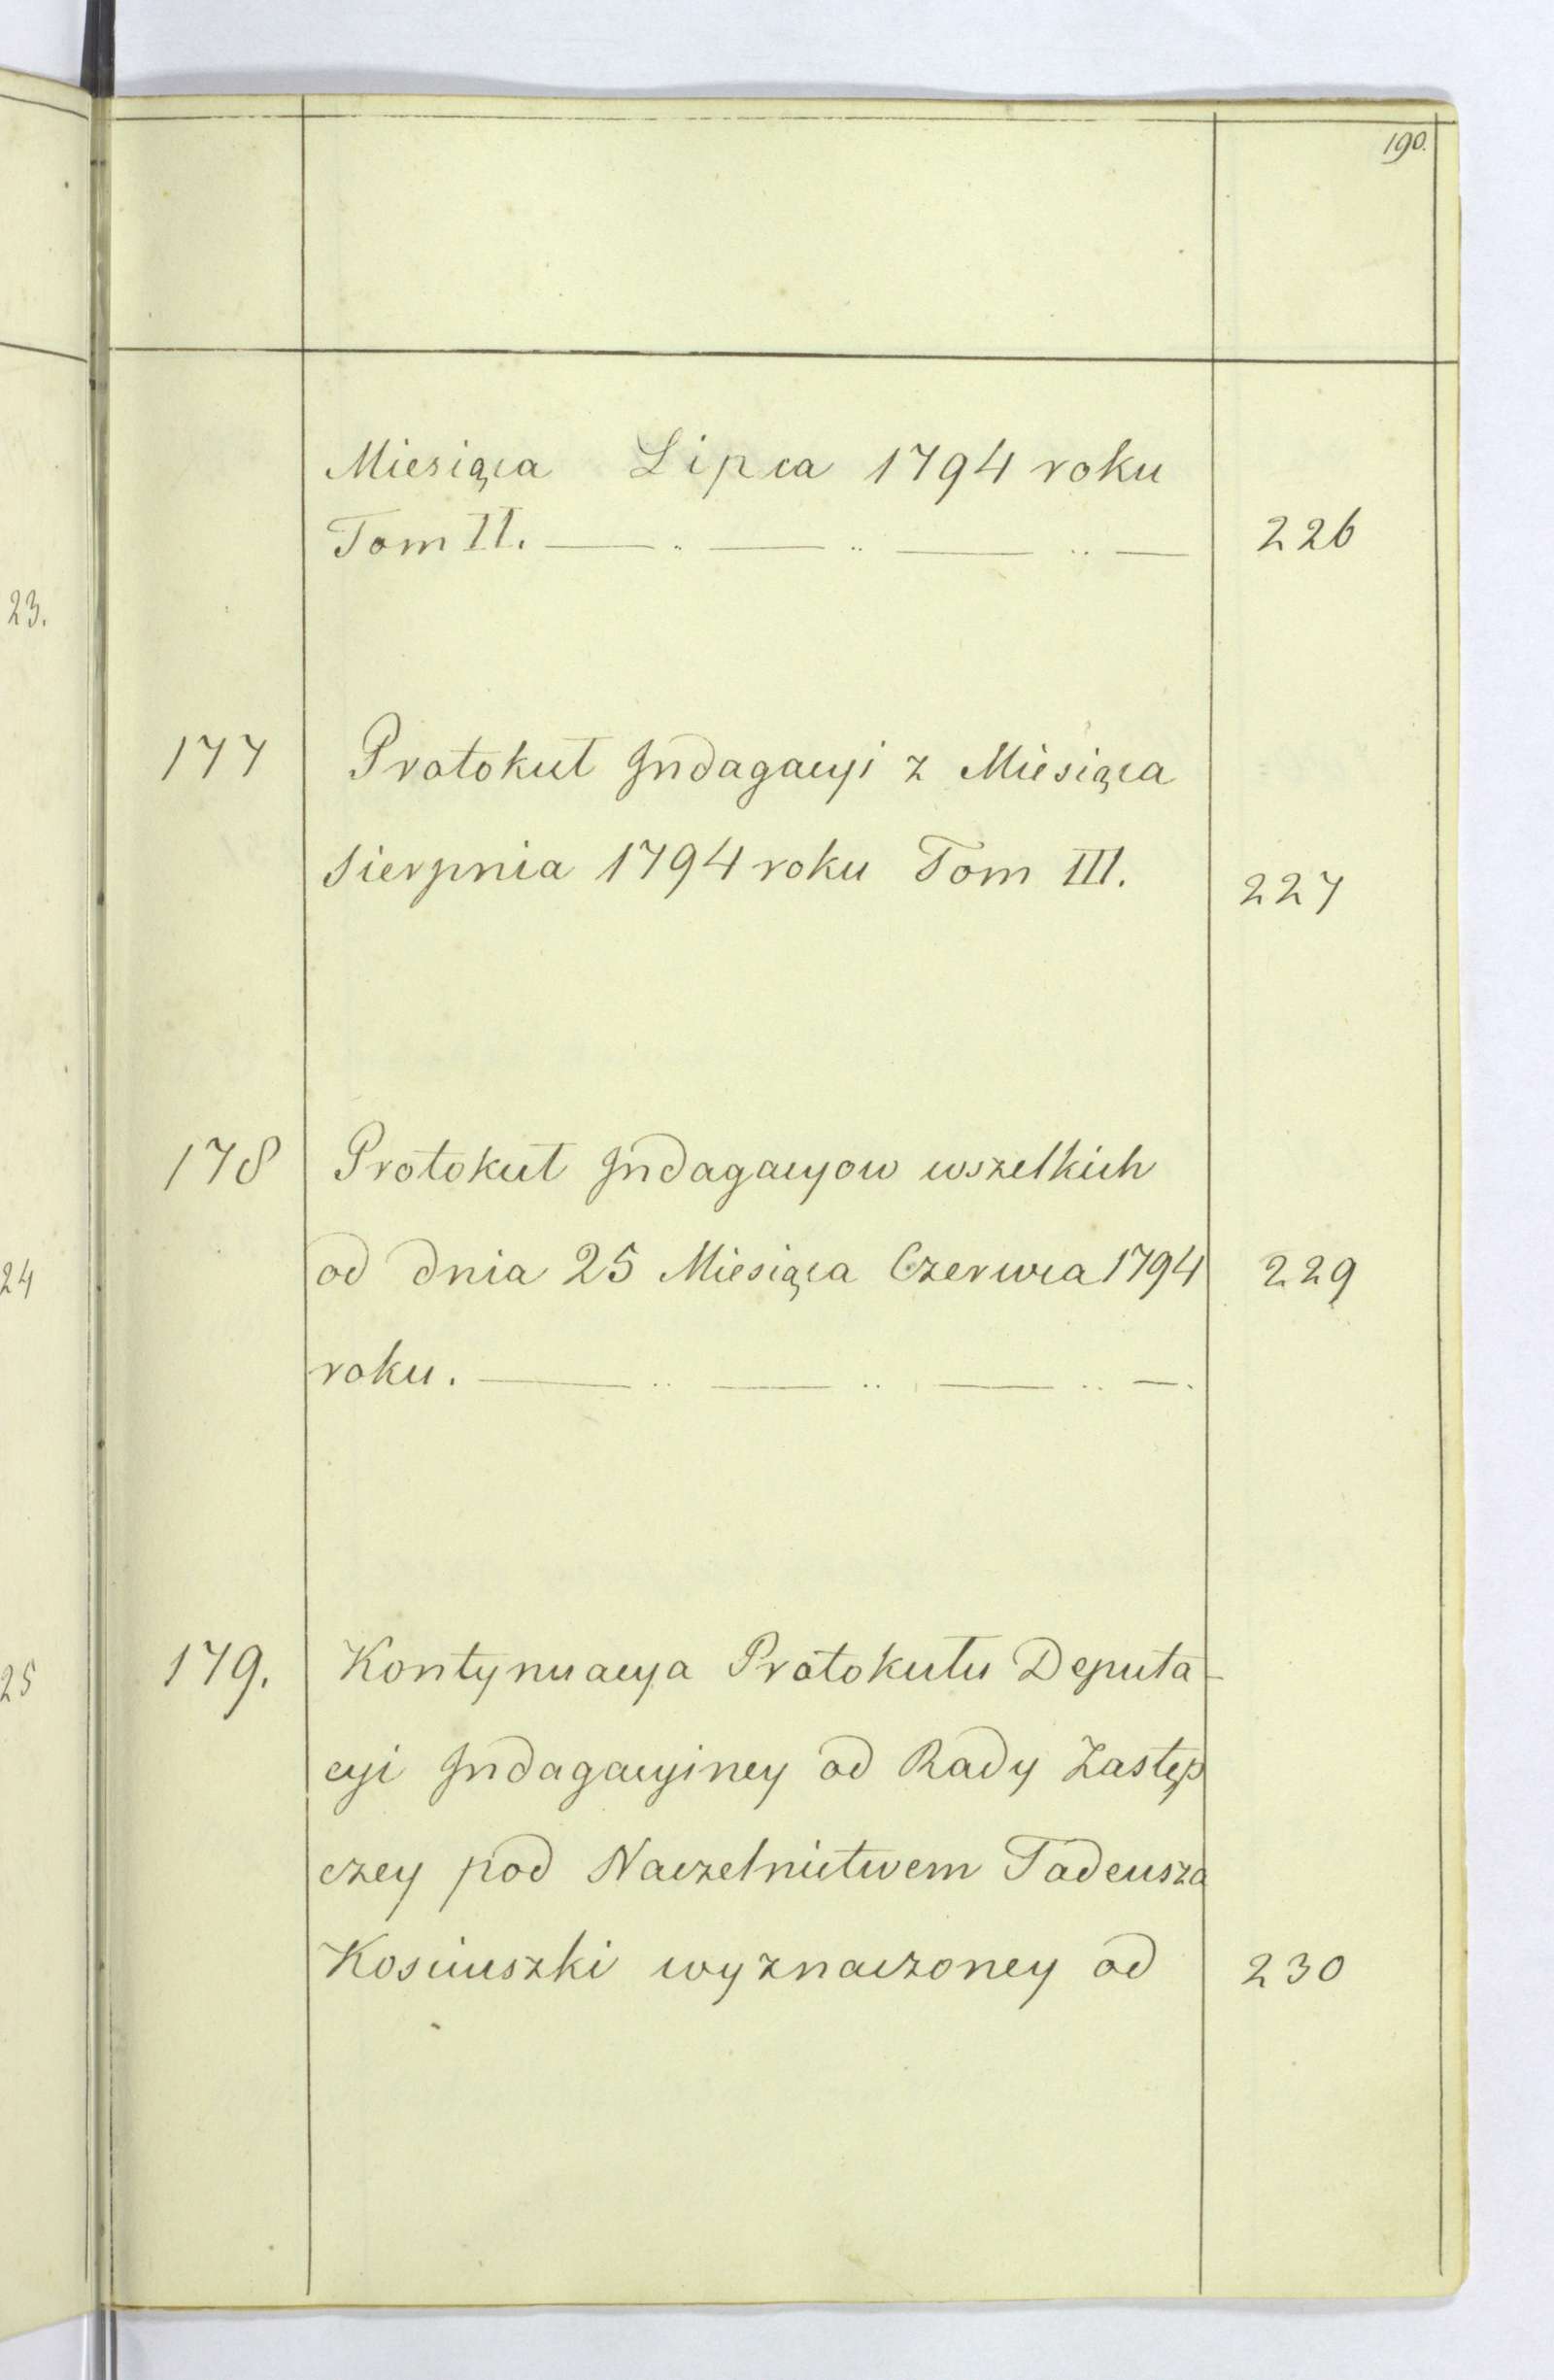 190.
Miesiąca Lipca 1794 roku
Tom II. 226
23.
177 Protokuł Indagacyi z Miesiąca
Sierpnia 1794 roku Tom III. 227
178 Protokuł Indagacyow wszelkich
od dnia 25 Miesiąca Czerwca 1794 229
24
roku.
179. Kontynuacya Protokułu Deputa-
25
cyi Indagacyiney od Rady Zastęp
czey pod Naczelnictwem Tadeusza
Kosciuszki wyznaczoney od 230